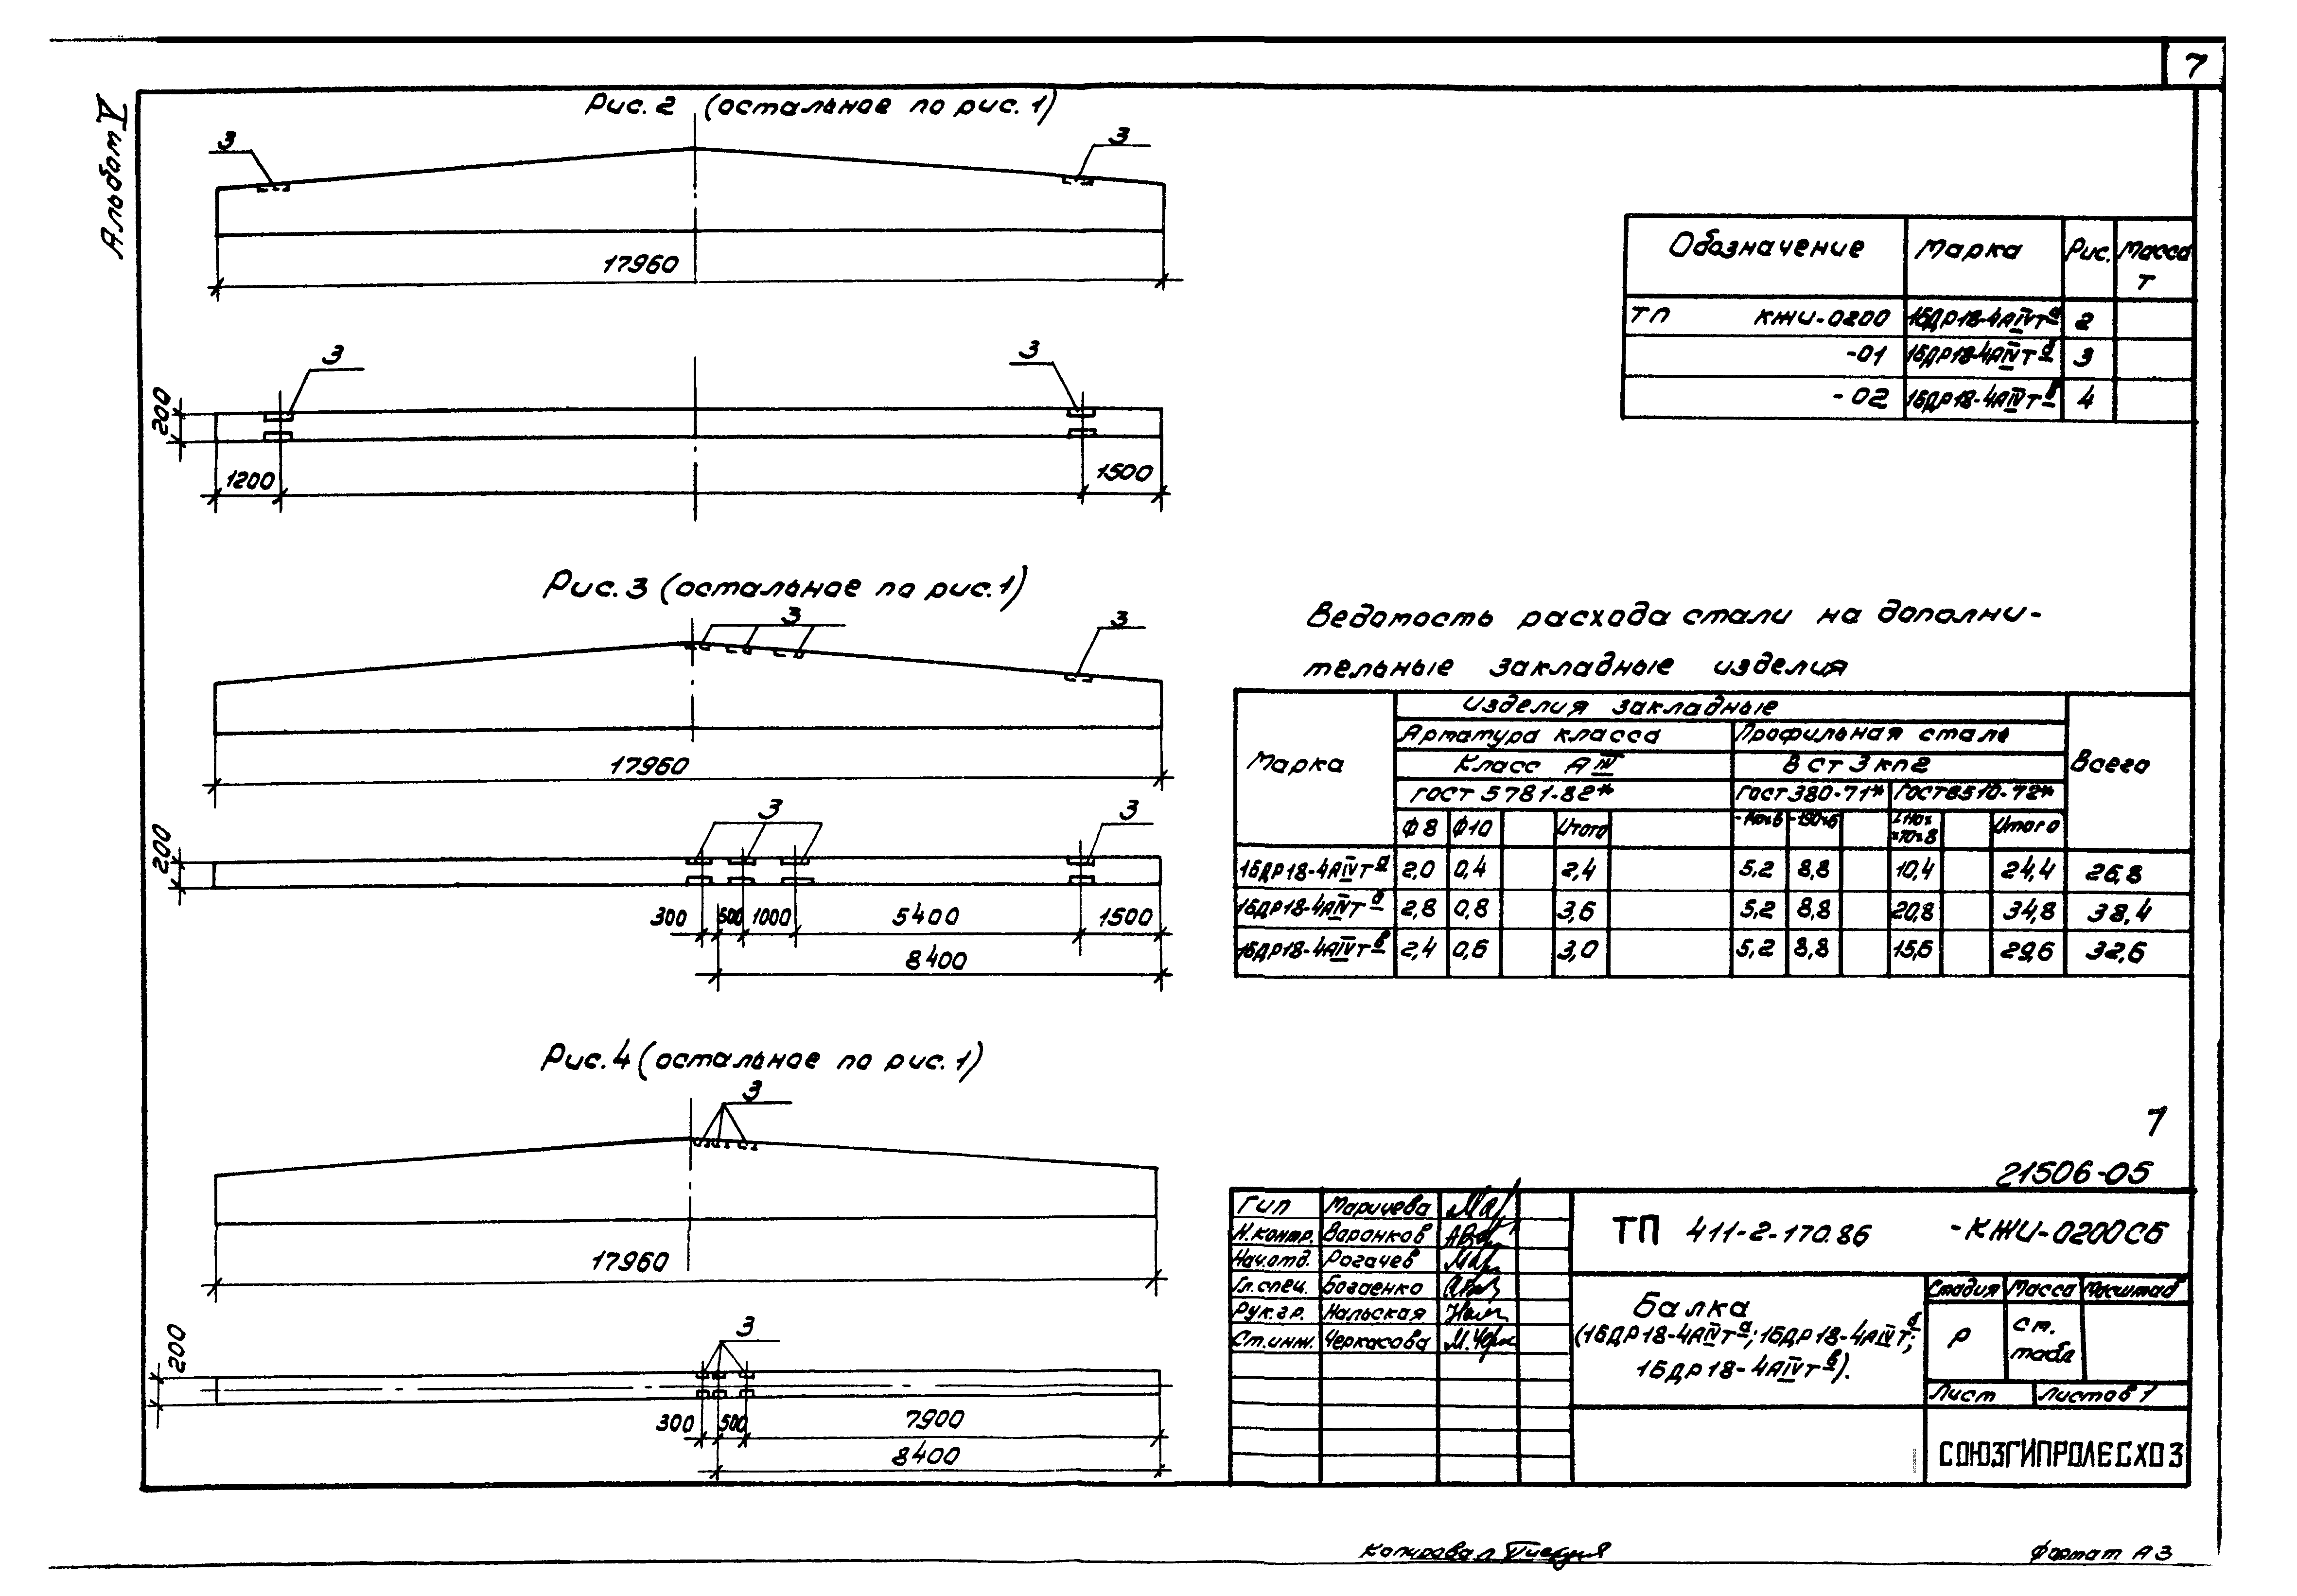 7
Альбом V
Рис. 2 (остальное по рис. 1)
3
3
17960
3
3
200
1200
1500
Рис. 3 (остальное по рис. 1)
3
3
17960
3
3
200
300 500 1000 5400 1500
8400
Рис. 4 (остальное по рис. 1)
3
17960
3
200
300 500 7900
8400
Обозначение Марка Рис. Масса т
ТП КЖИ-0200 1БДР18-4АIVТа 2
-01 1БДР18-4АIVТб 3
-02 1БДР18-4АIVТв 4
Ведомость расхода стали на дополни-
тельные закладные изделия
Марка Изделия закладные Всего
Арматура класса Профильная сталь
Класс А IV В Ст 3 кп2
ГОСТ 5781-82* ГОСТ 380-71* ГОСТ 8510-72*
Ф8 Ф10 Итого Итого
1БДР18-4АIVТа 2,0 0,4 2,4 5,2 8,8 10,4 24,4 26,8
1БДР18-4АIVТб 2,8 0,8 3,6 5,2 8,8 20,8 34,8 38,4
1БДР18-4АIVТв 2,4 0,6 3,0 5,2 8,8 15,6 29,6 32,6
7
21506-05
ГИП Маричева
Н.контр. Воронков
Нач.отд. Рогачев
Гл.спец. Богаенко
Рук.гр. Нальская
Ст.инж. Черкасова М.Черк
ТП 411-2-170.86 -КЖИ-0200СБ
Балка
(1БДР18-4АIVТа; 1БДР18-4АIVТб;
1БДР18-4АIVТв).
Стадия Масса Масштаб
Р ст. табл
Лист Листов 1
СОЮЗГИПРОЛЕСХОЗ
Копировал
Формат А3